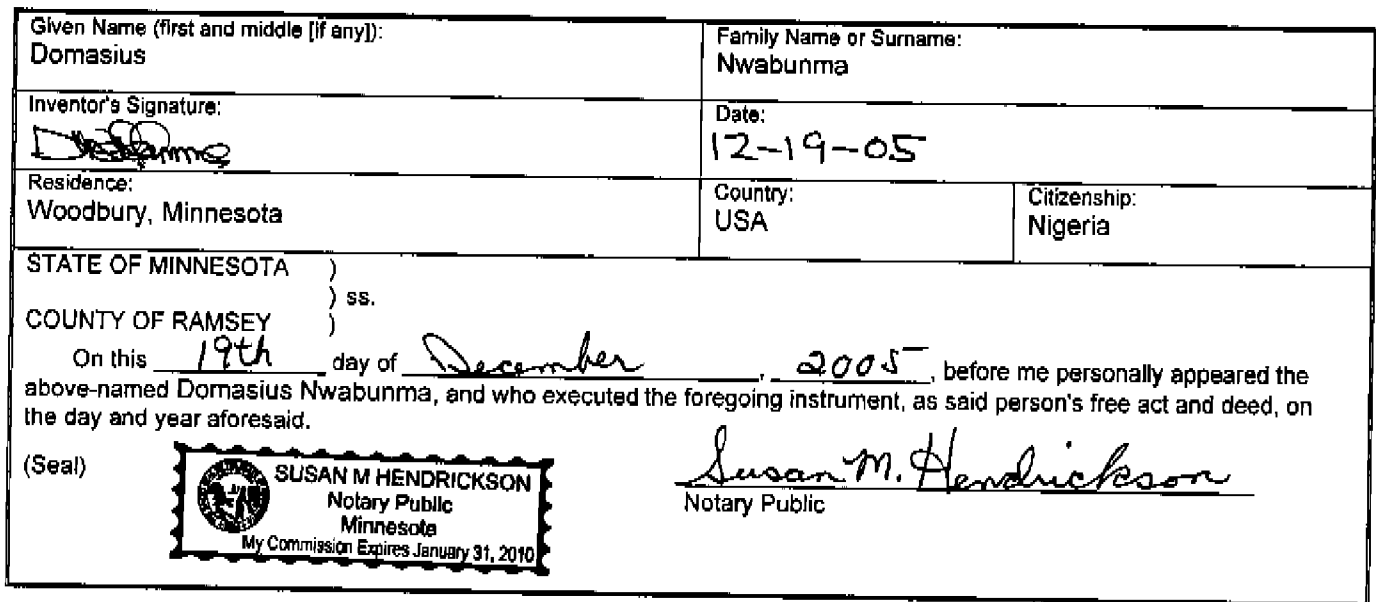 Given Name (first and middle [if any]):
Domasius
Family Name or Surname:
Nwabunma
Inventor's Signature:
Date:
12-19-05
Residence:
Woodbury, Minnesota
Country:
USA
Citizenship:
Nigeria
STATE OF MINNESOTA )
) ss.
COUNTY OF RAMSEY )
On this 19th day of December, 2005, before me personally appeared the
above-named Domasius Nwabunma, and who executed the foregoing instrument, as said person's free act and deed, on
the day and year aforesaid.
(Seal)
SUSAN M HENDRICKSON
Notary Public
Minnesota
My Commission Expires January 31, 2010
Susan M. Hendrickson
Notary Public